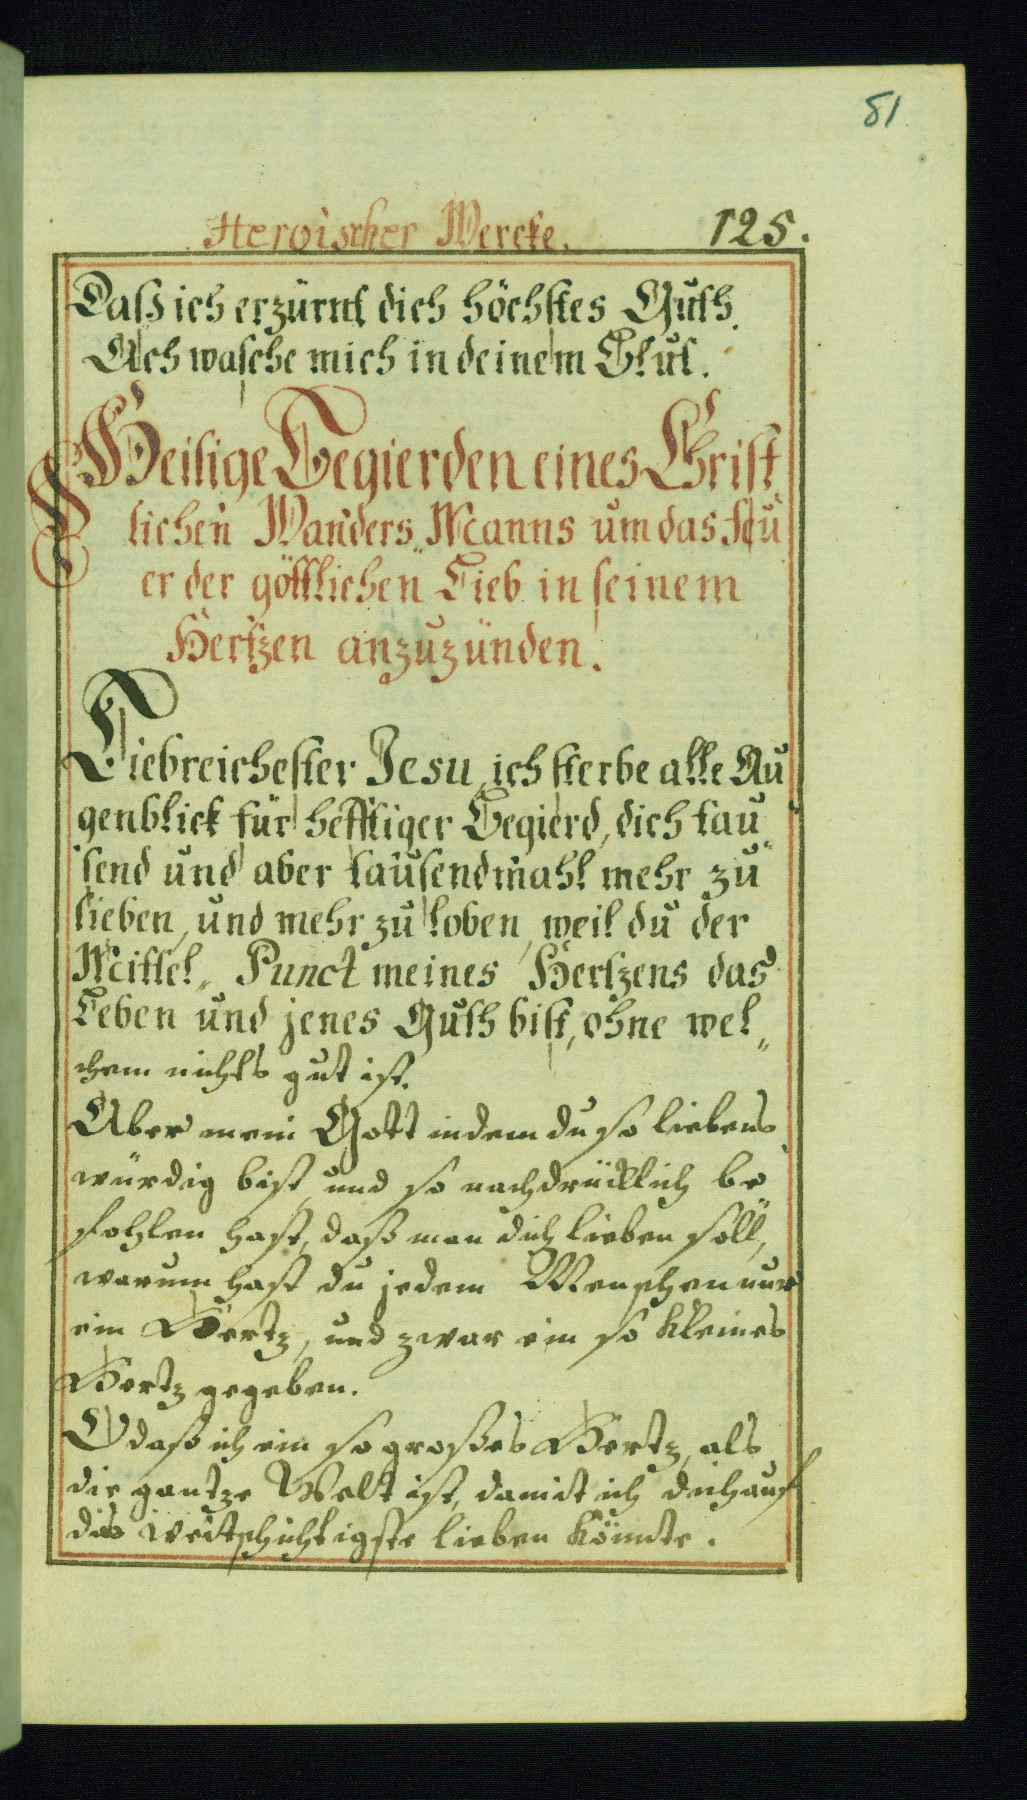 81
Heroischer Wercke. 125.
Daß ich erzürnt dich höchstes Guth
Ach wasche mich in deinem Blut.
Heilige Begierden eines Christ
lichen Wanders„ Manns um das Feu
er der göttlichen Lieb in seinem
Hertzen anzuzünden.
Liebreichester Jesu, ich sterbe alle Au
genblick für hefftiger Begierd, dich tau„
send und aber tausendmahl mehr zu
lieben, und mehr zu loben, weil du der
Mittel„ Punct meines Hertzens das
Leben und jenes Guth bist, ohne wel„
chem nichts gut ist.
Aber mein Gott indem du so liebens
würdig bist, und so nachdrücklich be„
fohlen hast, daß man dich lieben soll,
warum hast du jedem Menschen nur
ein Hertz, und zwar ein so kleines
Hertz gegeben.
O daß ich ein so großes Hertz, als
die gantze Welt ist, damit ich dich auf
das weitschichtigste lieben könnte.